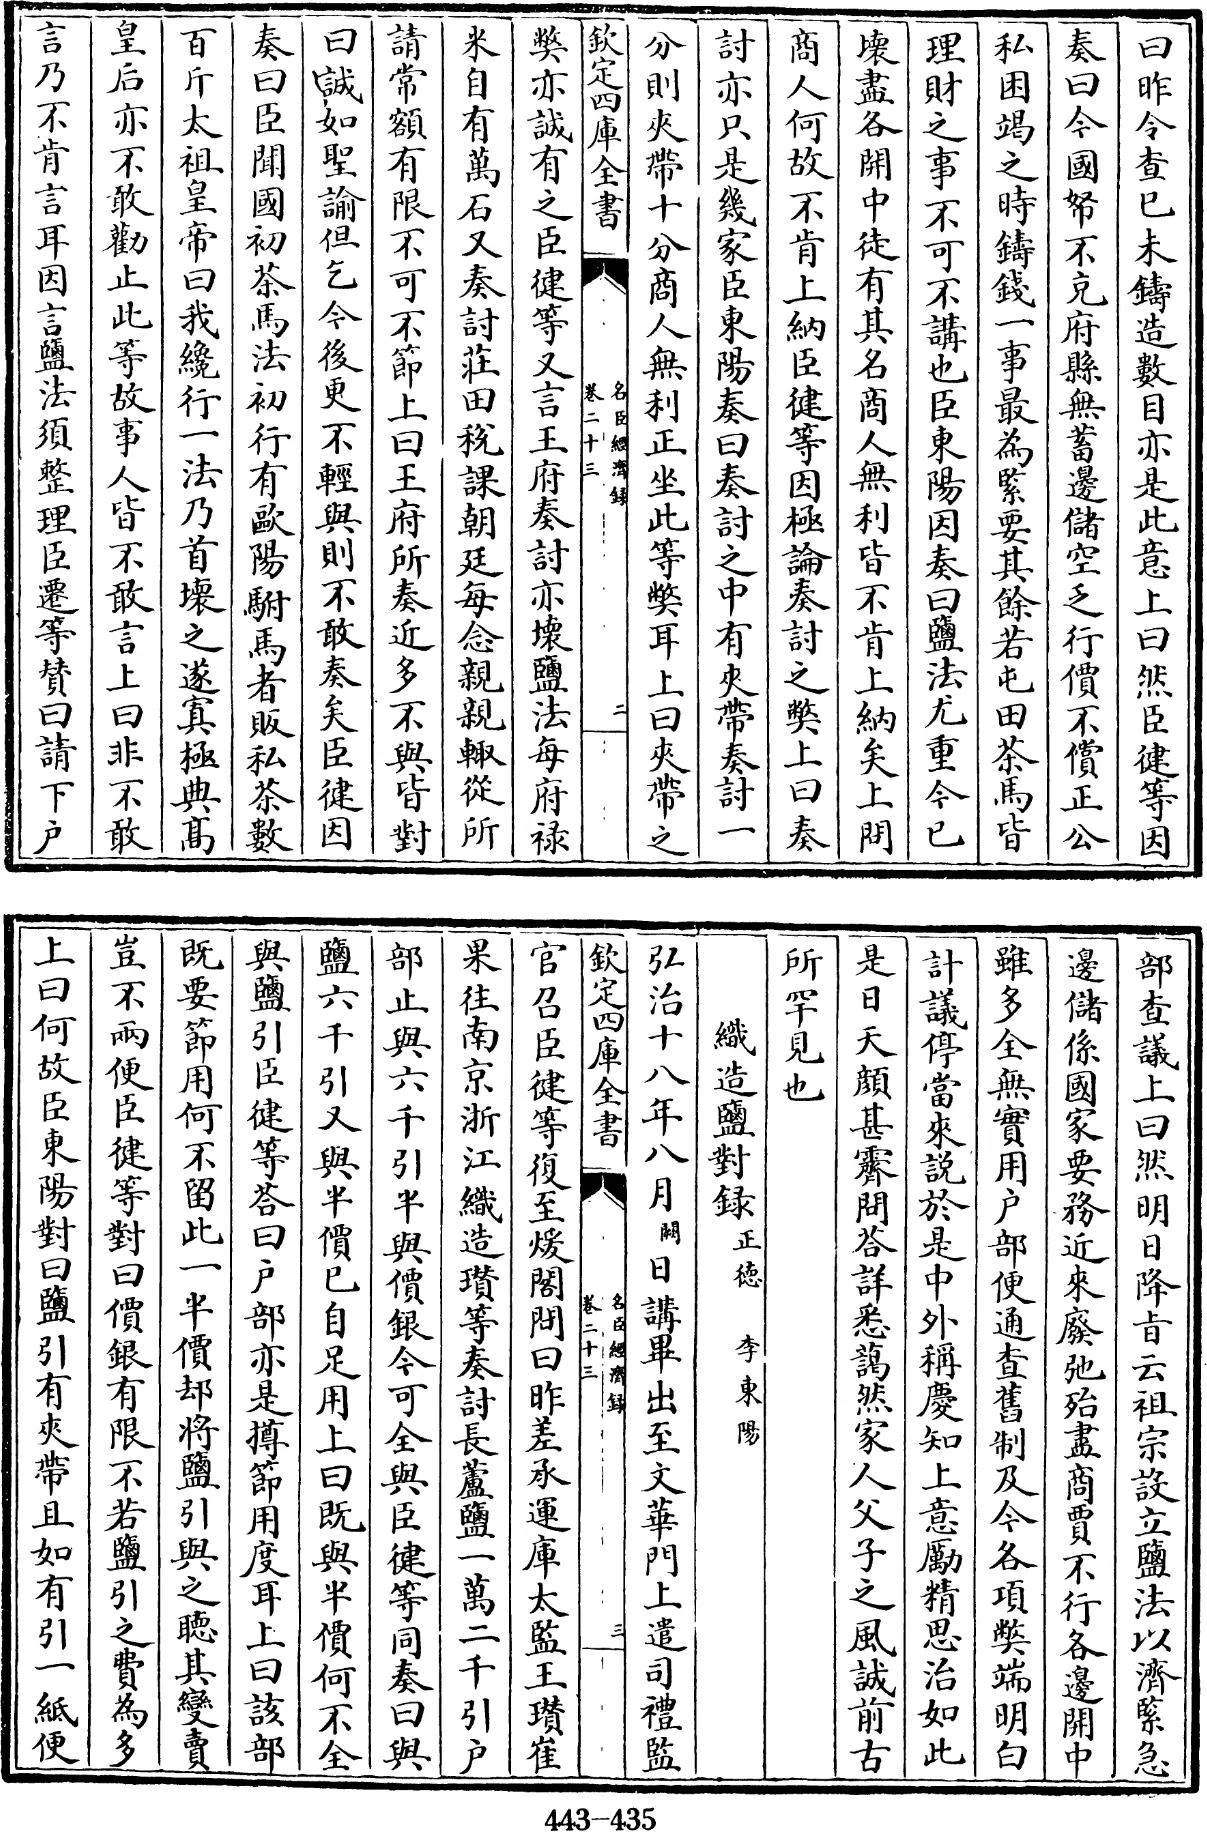 曰昨令查已未鑄造數目亦是此意上曰然臣健等因
奏曰今國帑不充府縣無蓄邊儲空乏行價不償正公
私困竭之時鑄錢一事最為緊要其餘若屯田茶馬皆
理財之事不可不講也臣東陽因奏曰鹽法尤重今已
壞盡各開中徒有其名商人無利皆不肯上納矣上問
商人何故不肯上納臣健等因極論奏討之弊上曰奏
討亦只是幾家臣東陽奏曰奏討之中有夾帶奏討一
分則夾帶十分商人無利正坐此等弊耳上曰夾帶之
欽定四庫全書
名臣經濟録
卷二十三
二
弊亦誠有之臣健等又言王府奏討亦壞鹽法每府禄
米自有萬石又奏討莊田稅課朝廷每念親親輙從所
請常額有限不可不節上曰王府所奏近多不與皆對
曰誠如聖諭但乞今後更不輕與則不敢奏矣臣健因
奏曰臣聞國初茶馬法初行有歐陽駙馬者販私茶數
百斤太祖皇帝曰我纔行一法乃首壞之遂寘極典高
皇后亦不敢勸止此等故事人皆不敢言上曰非不敢
言乃不肯言耳因言鹽法須整理臣遷等賛曰請下户
部查議上曰然明日降旨云祖宗設立鹽法以濟緊急
邊儲係國家要務近來廢弛殆盡商賈不行各邊開中
雖多全無實用户部便通查舊制及今各項弊端明白
計議停當來説於是中外稱慶知上意勵精思治如此
是日天顔甚霽問荅詳悉藹然家人父子之風誠前古
所罕見也
織造鹽對録 正德 李東陽
弘治十八年八月闕日講畢出至文華門上遣司禮監
欽定四庫全書
名臣經濟録
卷二十三
三
官召臣健等復至煖閣問曰昨差承運庫太監王瓚崔
果往南京浙江織造瓚等奏討長蘆鹽一萬二千引户
部止與六千引半與價銀今可全與臣健等同奏曰與
鹽六千引又與半價已自足用上曰既與半價何不全
與鹽引臣健等荅曰户部亦是撙節用度耳上曰該部
既要節用何不留此一半價却將鹽引與之聽其變賣
豈不兩便臣健等對曰價銀有限不若鹽引之費為多
上曰何故臣東陽對曰鹽引有夾帶且如有引一紙便
443-435